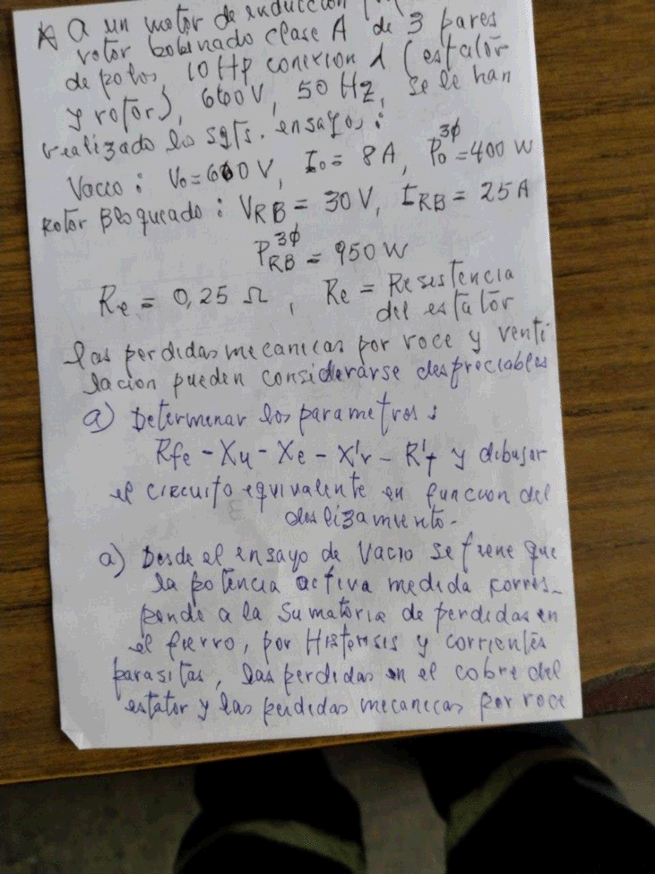 * A un motor de inducción
rotor bobinado clase A de 3 pares
de polos, 10 HP conexion λ (estator
y rotor), 660V, 50 Hz, se le han
realizado los sgts. ensayos:
Vacio: V₀=660V, I₀= 8A, P₀³ᶲ=400 W
Rotor Bloqueado: VRB = 30V, IRB = 25A
P³ᶲRB = 950 W
Re = 0,25 Ω, Re = Resistencia
del estator
las perdidas mecanicas por roce y venti
lacion pueden considerarse despreciables
a) Determinar los parametros:
Rfe - Xu - Xe - X'r - R'r y dibujar
el circuito equivalente en funcion del
deslizamiento.
a) Desde el ensayo de Vacio se tiene que
la potencia activa medida corres-
ponde a la sumatoria de perdidas en
el fierro, por Histersis y corrientes
parasitas, las perdidas en el cobre del
estator y las perdidas mecanicas por roce